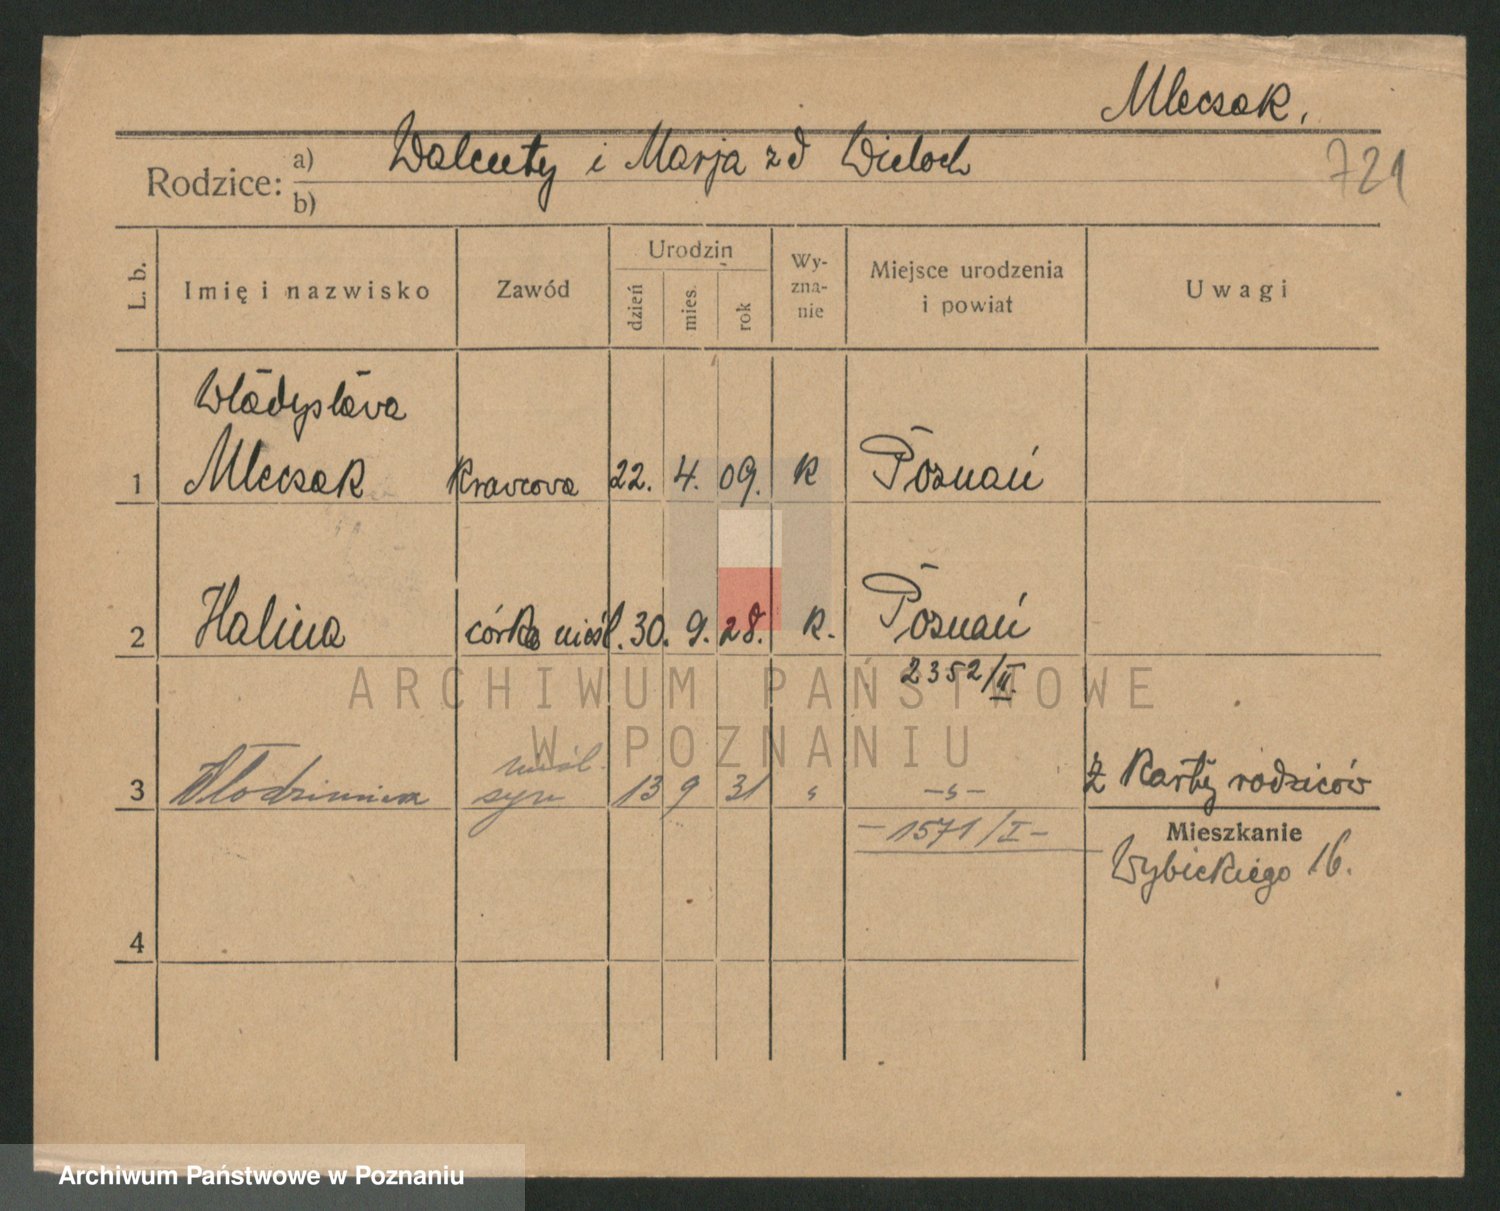 Mlecsak.
721
Rodzice: a) Walenty i Marja zd Wieloch
b)
L. b.
Imię i nazwisko
Zawód
Urodzin
dzień
mies.
rok
Wy-
zna-
nie
Miejsce urodzenia
i powiat
Uwagi
Władysława
1 Mlecsak krawcowa 22. 4. 09. k Poznań
2 Halina córka nieśl. 30. 9. 28. k. Poznań
2352/II.
nieśl.
3 syn 13 9 31 " -"- z karty rodziców
-1571/I-
Mieszkanie
Wybickiego 16.
4
ARCHIWUM PAŃSTWOWE
W POZNANIU
Archiwum Państwowe w Poznaniu